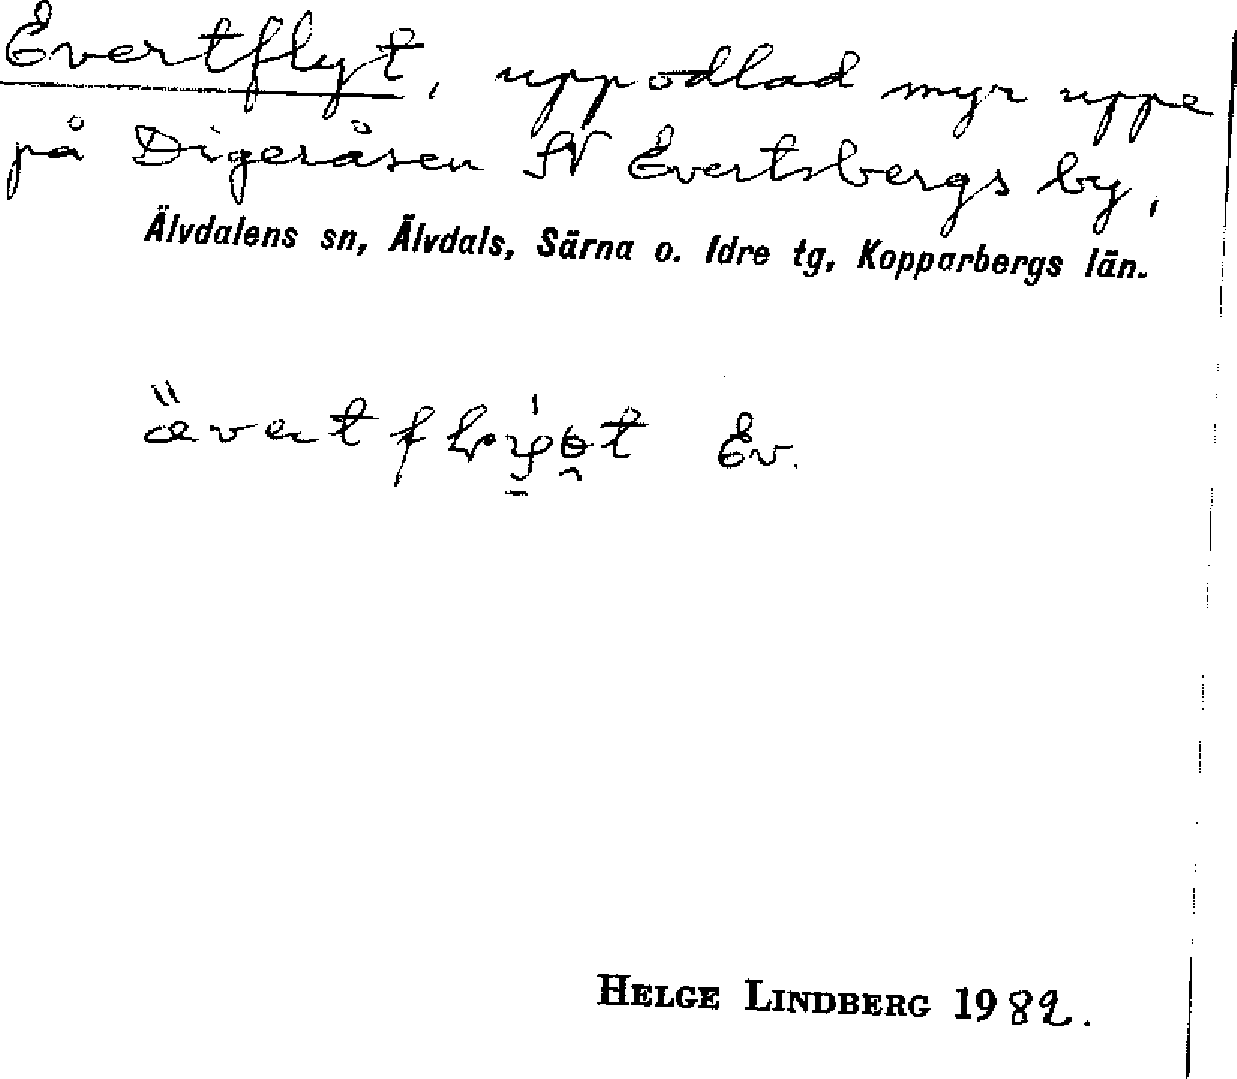 Evertflyt, uppodlad myr uppe
på Digeråsen SV Evertsbergs by,
Älvdalens sn, Älvdals, Särna o. Idre tg, Kopparbergs län.
Ev.
HELGE LINDBERG 1982.